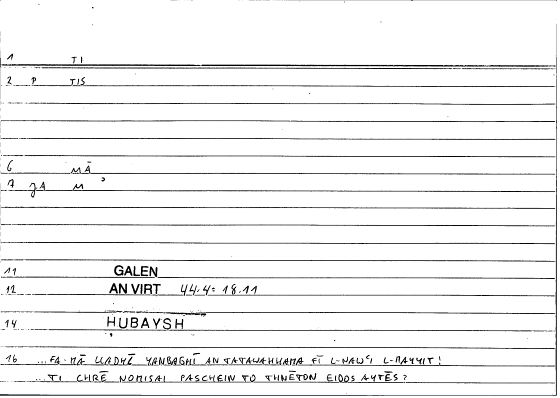 1 TI
2 P TIS
6 MĀ
7 JA M ʾ
11 GALEN
12 AN VIRT 44.4 = 18.11
14 HUBAYSH
16 ...FA-MĀ LLADHĪ YANBAGHĪ AN TATAWAHHAMA FĪ L-NAWʿI L-MAYYIT!
...TI CHRĒ NOMISAI PASCHEIN TO THNĒTON EIDOS AYTĒS?